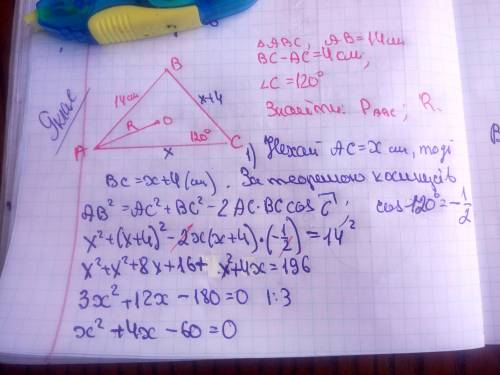 9клас
△ABC, AB=14см
BC-AC=4см,
∠C=120°
Знайти: P_ABC; R.
B
14см
x+4
R
O
120°
A
C
x
1) Нехай AC=x см, тоді
BC=x+4(см). За теоремою косинусів
AB²=AC²+BC²-2AC·BC cos C; cos 120°=-1/2
x²+(x+4)²-2x(x+4)·(-1/2)=14²
x²+x²+8x+16+x²+4x=196
3x²+12x-180=0 |:3
x²+4x-60=0
B